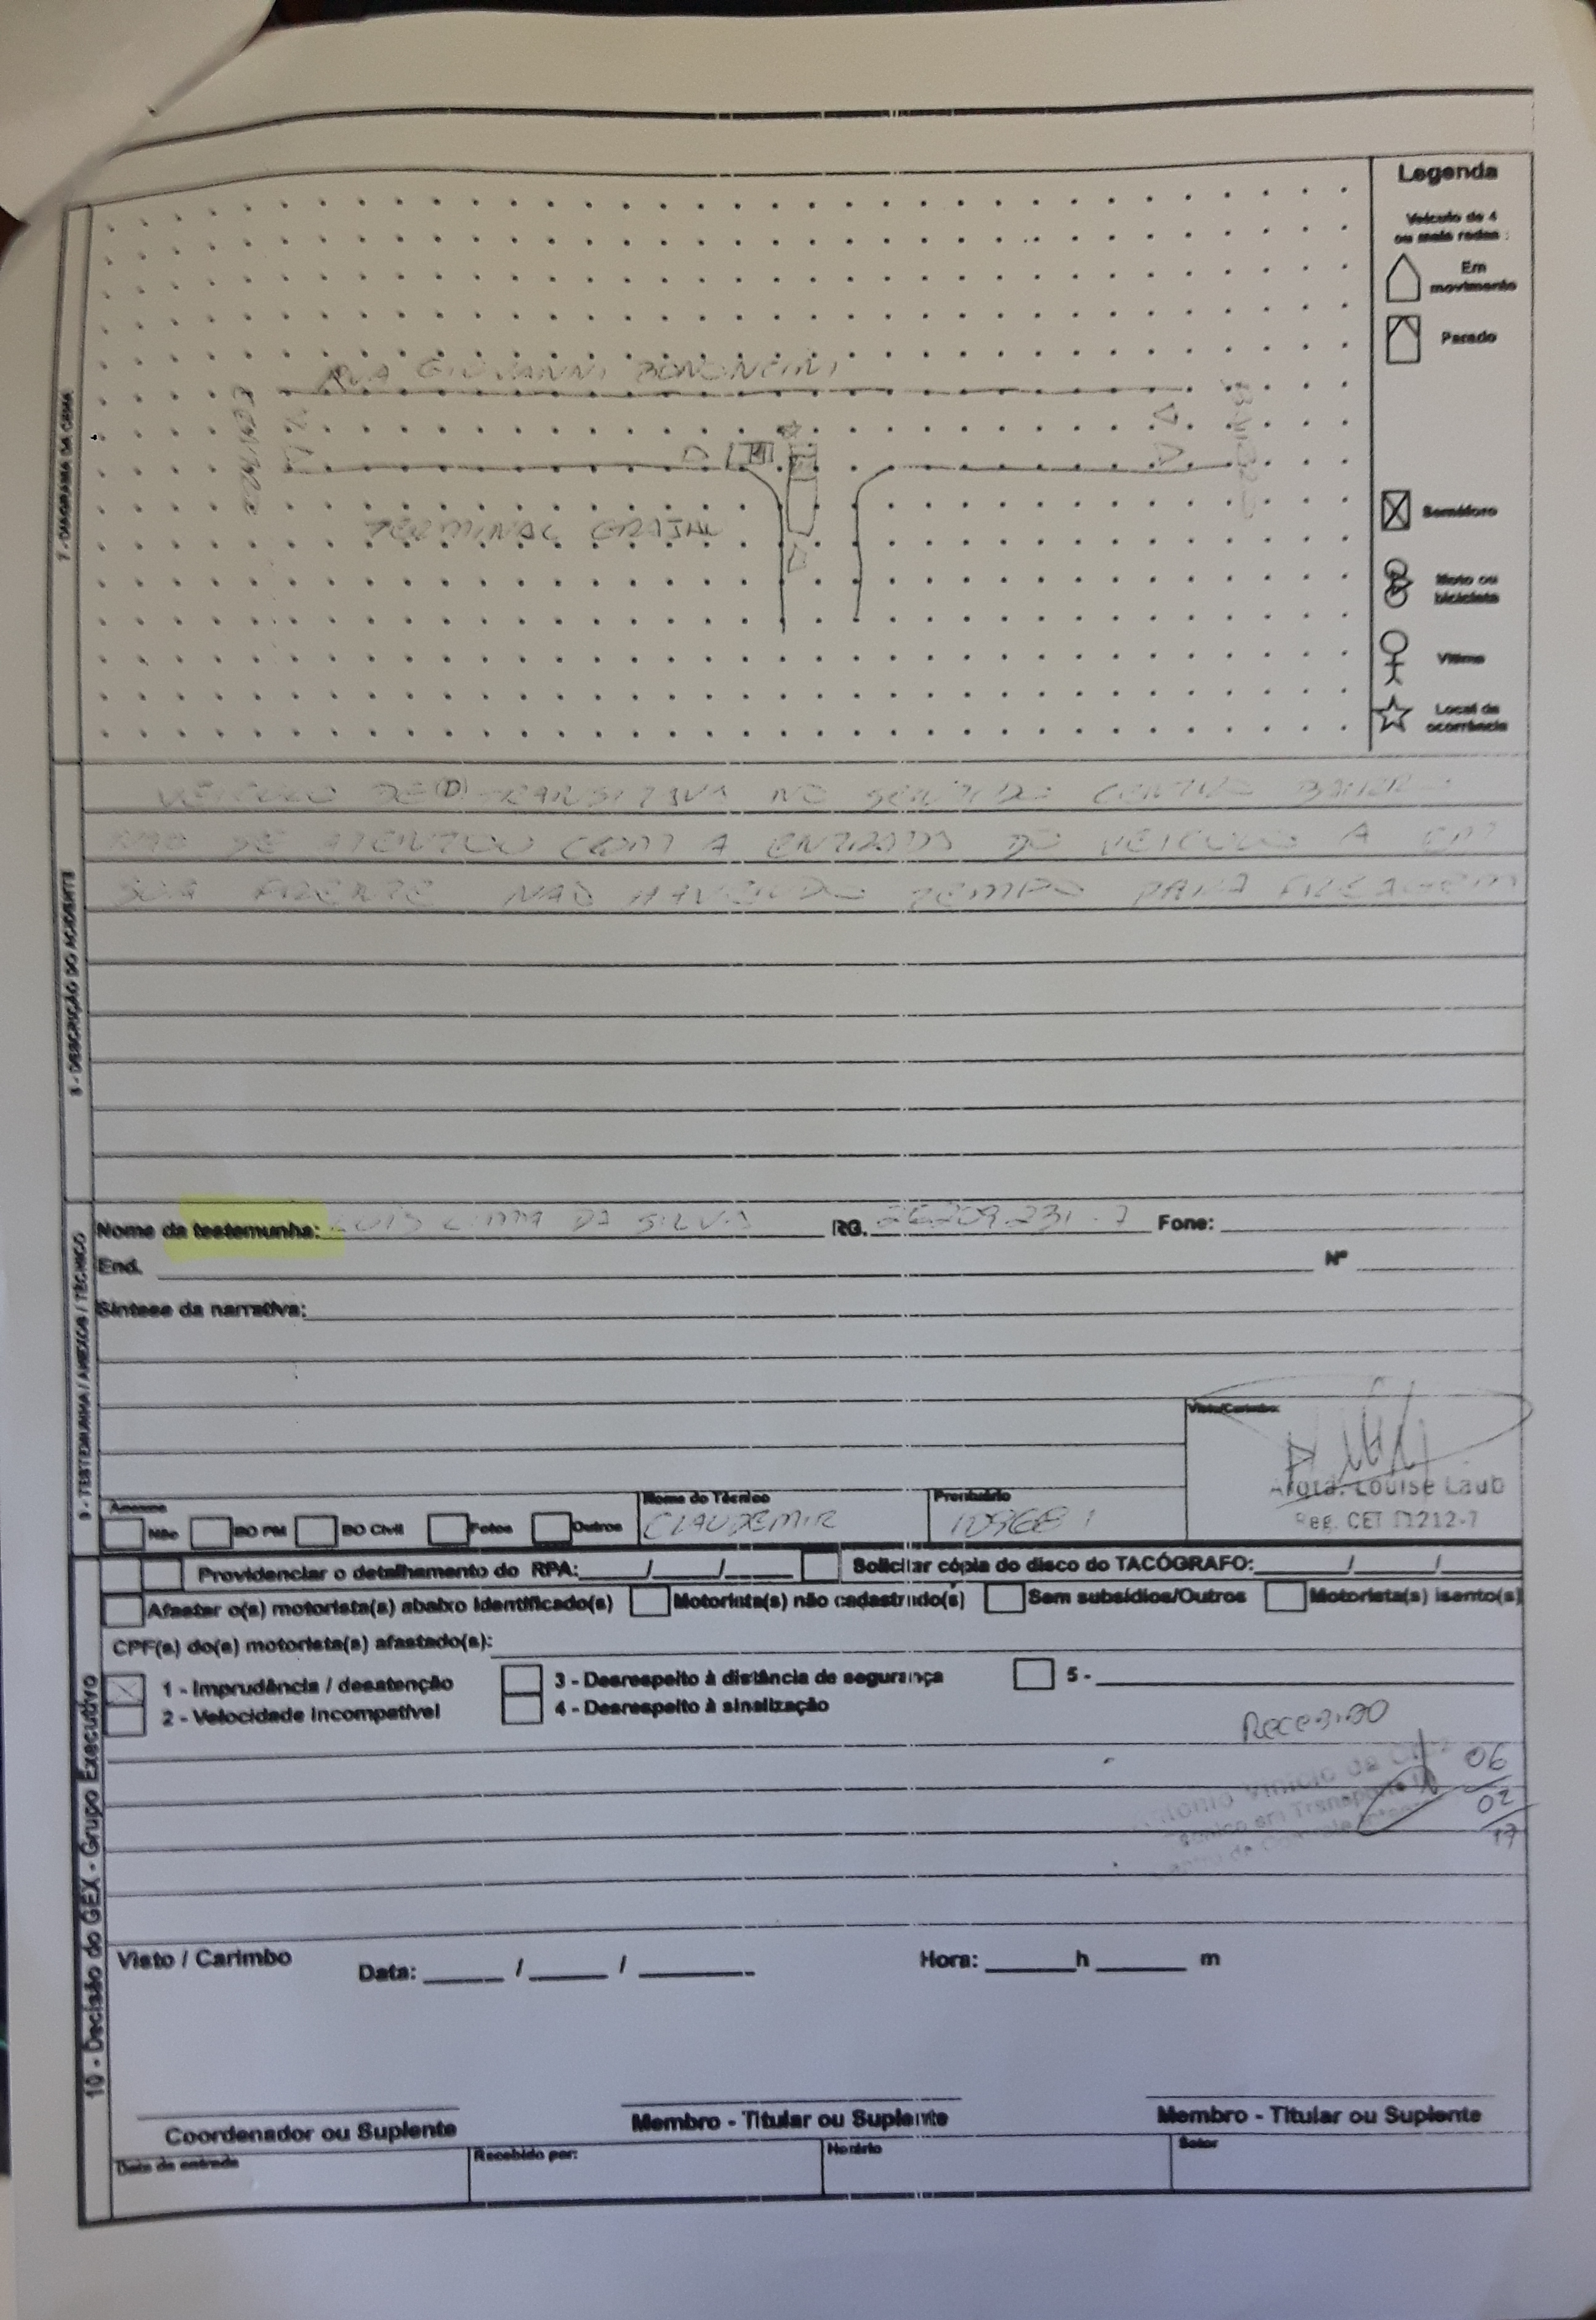 Legenda
Veículo de 4
ou mais rodas :
Em
movimento
Parado
Semáforo
Moto ou
bicicleta
Vítima
Local da
ocorrência
7 - DIAGRAMA DA CENA
RUA GIOVANNI BONONCINI
CENTRO
BAIRRO
TERMINAL GRAJAU
8 - DESCRIÇÃO DO ACIDENTE
VEICULO DE (D) TRANSITAVA NO SENTIDO CENTRO BAIRRO
NAO SE ATENTOU COM A ENTRADA DO VEICULO A EM
SUA FRENTE NAO HAVENDO TEMPO PARA FREAGEM
9 - TESTEMUNHA / ANEXOS / TÉCNICO
Nome da testemunha: LUIS DA SILVA RG. 26209231-7 Fone:
End. Nº
Síntese da narrativa:
Visto/Carimbo:
Arqta. Louise Laub
Reg. CET 11212-7
Anexos
Não BO PM BO Civil Fotos Outros
Nome do Técnico
CLAUDEMIR
Prontuário
10 - Decisão do GEX - Grupo Executivo
Providenciar o detalhamento do RPA: / / Solicitar cópia do disco do TACÓGRAFO: / /
Afastar o(s) motorista(s) abaixo identificado(s) Motorista(s) não cadastrado(s) Sem subsídios/Outros Motorista(s) isento(s)
CPF(s) do(s) motorista(s) afastado(s):
1 - Imprudência / desatenção 3 - Desrespeito à distância de segurança 5 -
2 - Velocidade incompatível 4 - Desrespeito à sinalização
RECEBIDO
Antonio Vinicio da
Técnico em Transporte
06/02/17
Visto / Carimbo Data: / / Hora: h m
Coordenador ou Suplente Membro - Titular ou Suplente Membro - Titular ou Suplente
Data de entrada Recebido por: Horário Setor